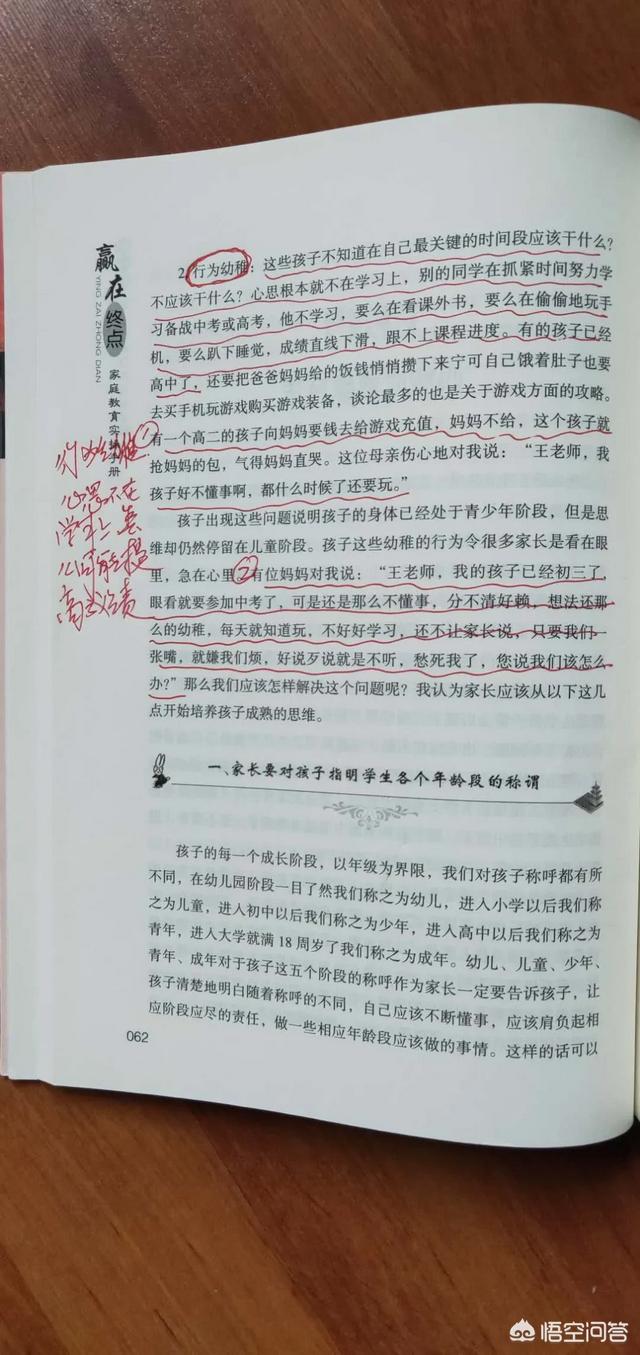 赢在终点
YING ZAI ZHONG DIAN
家庭教育实 册
2. 行为幼稚：这些孩子不知道在自己最关键的时间段应该干什么？
不应该干什么？心思根本就不在学习上，别的同学在抓紧时间努力学
习备战中考或高考，他不学习，要么在看课外书，要么在偷偷地玩手
机，要么趴下睡觉，成绩直线下滑，跟不上课程进度。有的孩子已经
高中了，还要把爸爸妈妈给的饭钱悄悄攒下来宁可自己饿着肚子也要
去买手机玩游戏购买游戏装备，谈论最多的也是关于游戏方面的攻略。
有一个高二的孩子向妈妈要钱去给游戏充值，妈妈不给，这个孩子就
抢妈妈的包，气得妈妈直哭。这位母亲伤心地对我说：“王老师，我
孩子好不懂事啊，都什么时候了还要玩。”
孩子出现这些问题说明孩子的身体已经处于青少年阶段，但是思
维却仍然停留在儿童阶段。孩子这些幼稚的行为令很多家长是看在眼
里，急在心里②有位妈妈对我说：“王老师，我的孩子已经初三了，
眼看就要参加中考了，可是还是那么不懂事，分不清好赖，想法还那
么的幼稚，每天就知道玩，不好好学习，还不让家长说，只要我们一
张嘴，就嫌我们烦，好说歹说就是不听，愁死我了，您说我们该怎么
办？”那么我们应该怎样解决这个问题呢？我认为家长应该从以下这几
点开始培养孩子成熟的思维。
①
心思不在
学习上
高成绩
一、家长要对孩子指明学生各个年龄段的称谓
孩子的每一个成长阶段，以年级为界限，我们对孩子称呼都有所
不同，在幼儿园阶段一目了然我们称之为幼儿，进入小学以后我们称
之为儿童，进入初中以后我们称之为少年，进入高中以后我们称之为
青年，进入大学就满 18 周岁了我们称之为成年。幼儿、儿童、少年、
青年、成年对于孩子这五个阶段的称呼作为家长一定要告诉孩子，让
孩子清楚地明白随着称呼的不同，自己应该不断懂事，应该肩负起相
应阶段应尽的责任，做一些相应年龄段应该做的事情。这样的话可以
062
悟空问答